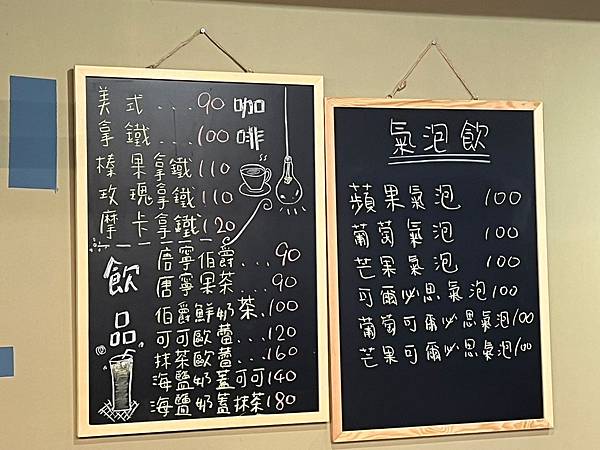 咖啡
美式...90
拿鐵...100
榛果拿鐵110
玫瑰拿鐵110
摩卡拿鐵120
飲品
唐寧伯爵...90
唐寧果茶...90
伯爵鮮奶茶.100
可可歐蕾...120
抹茶歐蕾...160
海鹽奶蓋可可140
海鹽奶蓋抹茶180
氣泡飲
蘋果氣泡 100
葡萄氣泡 100
芒果氣泡 100
可爾必思氣泡100
葡萄可爾必思氣泡100
芒果可爾必思氣泡100